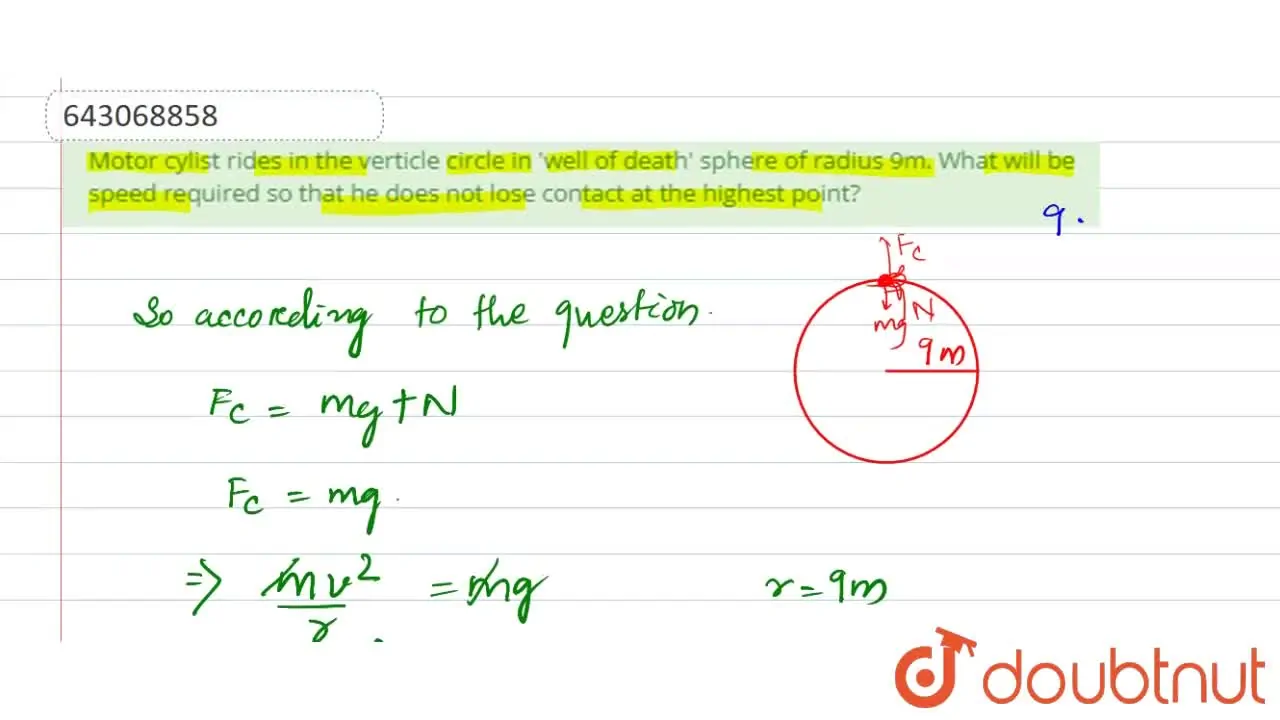 643068858
Motor cylist rides in the verticle circle in 'well of death' sphere of radius 9m. What will be
speed required so that he does not lose contact at the highest point?
9.
So according to the question.
Fc = mg + N
Fc = mg.
⇒ mv²/r = mg
Fc
N
mg
9m
r = 9m
doubtnut